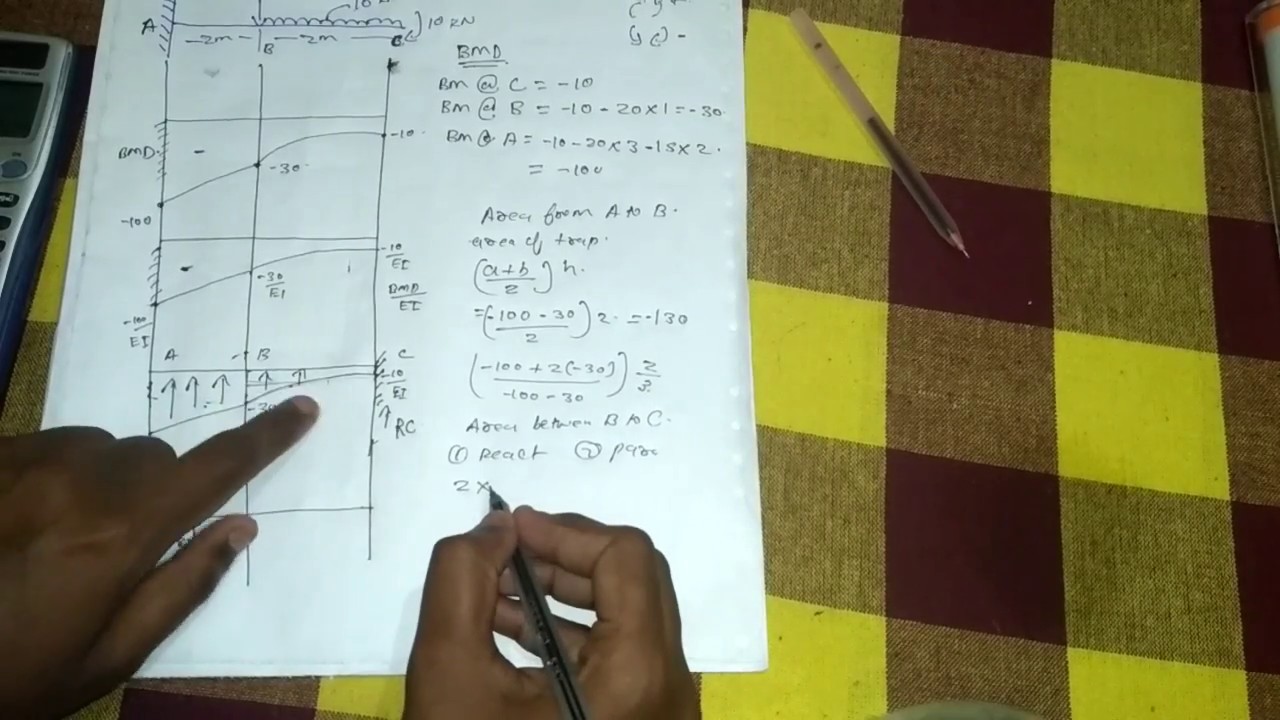 10 kN
A
10 kN
2m
B
2m
C
BMD
BM @ C = -10
BM @ B = -10 - 20×1 = -30
BM @ A = -10 - 20×3 - 15×2
= -100
BMD
-
-30
-10
-100
Area from A to B.
area of trap.
(a+b/2) h.
= (-100 - 30/2) 2. = -130
(-100 + 2(-30)/-100 - 30) 2/3
-
-30/EI
-10/EI
BMD/EI
-100/EI
A
B
C
-10/EI
RC
Area between B to C.
① react ② para
2 ×